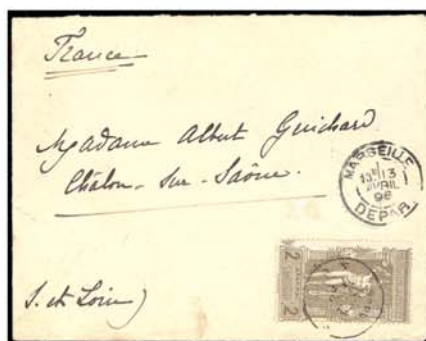 France
Madame Albert Guichard
Châlon-sur-Saône.
S. et Loire)
MARSEILLE
13
AVRIL
96
DEPART
2
2